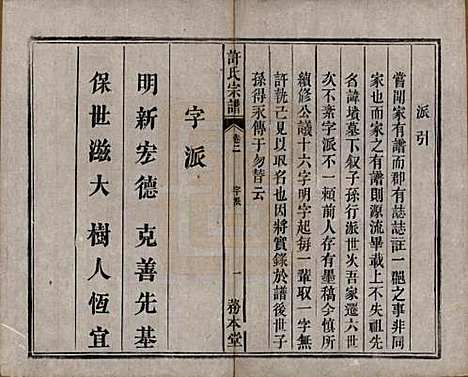 派引
嘗聞家有譜而郡有誌誌証一邑之事非同
家也而家之有譜則源流畢載上不失祖先
名諱墳墓下叙子孫行派世次吾家遷六世
次不紊字派不一賴前人存有墨稿今慎所
續修公議十六字明字起每一輩取一字無
許執己見以取名也因將實錄於譜後世子
孫得永傳于勿替云
許氏宗譜
卷一
字派
一
務本堂
字派
明新宏德 克善先基
保世滋大 樹人恆宜